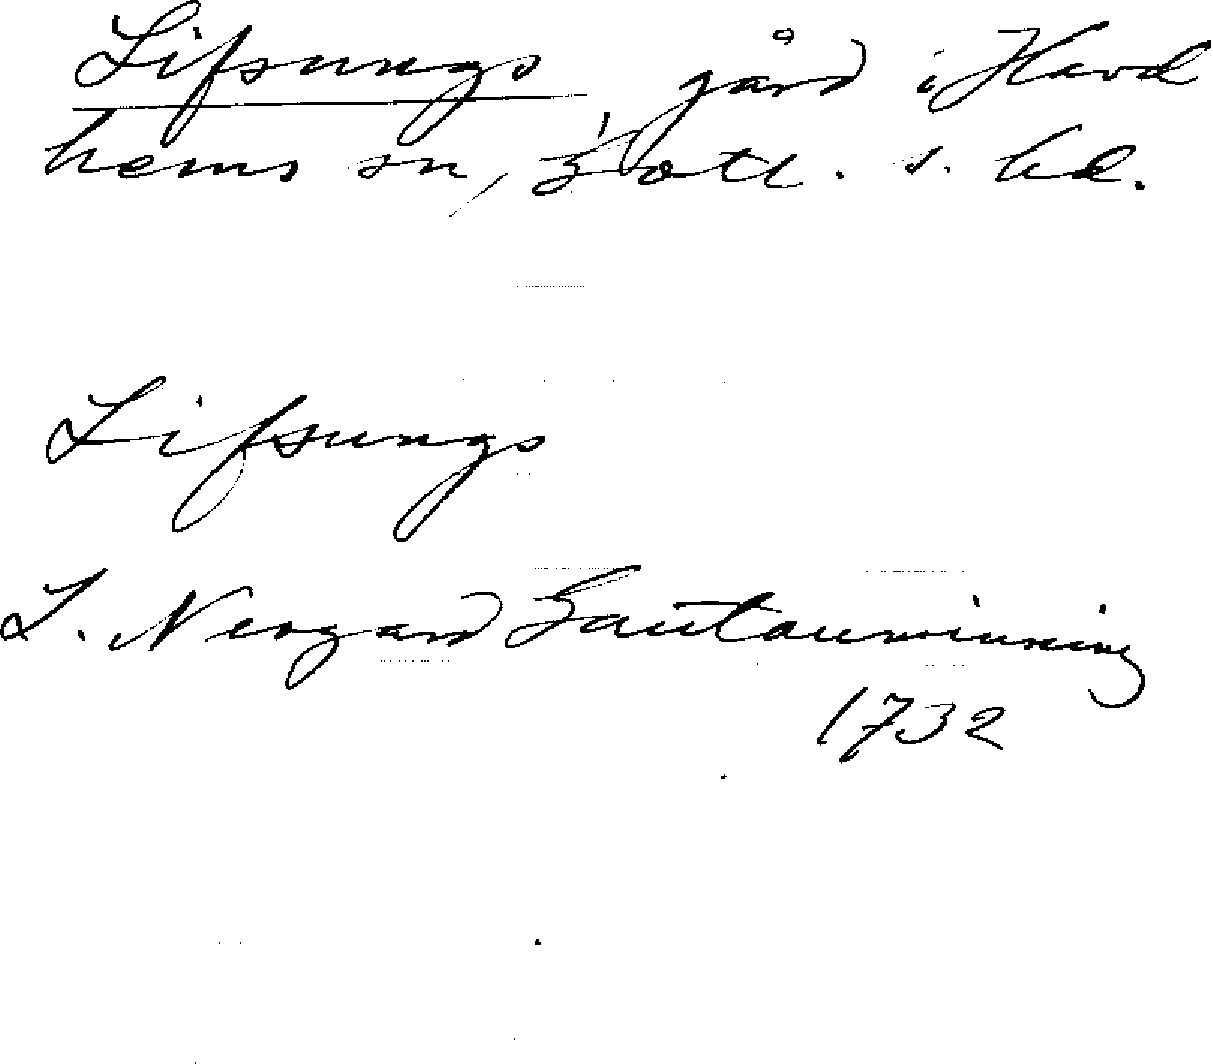 Lifsungs gård i Havd
hems sn, Gotl. s. hd.
Lifsungs
L. Neogard Gautauminning
1732